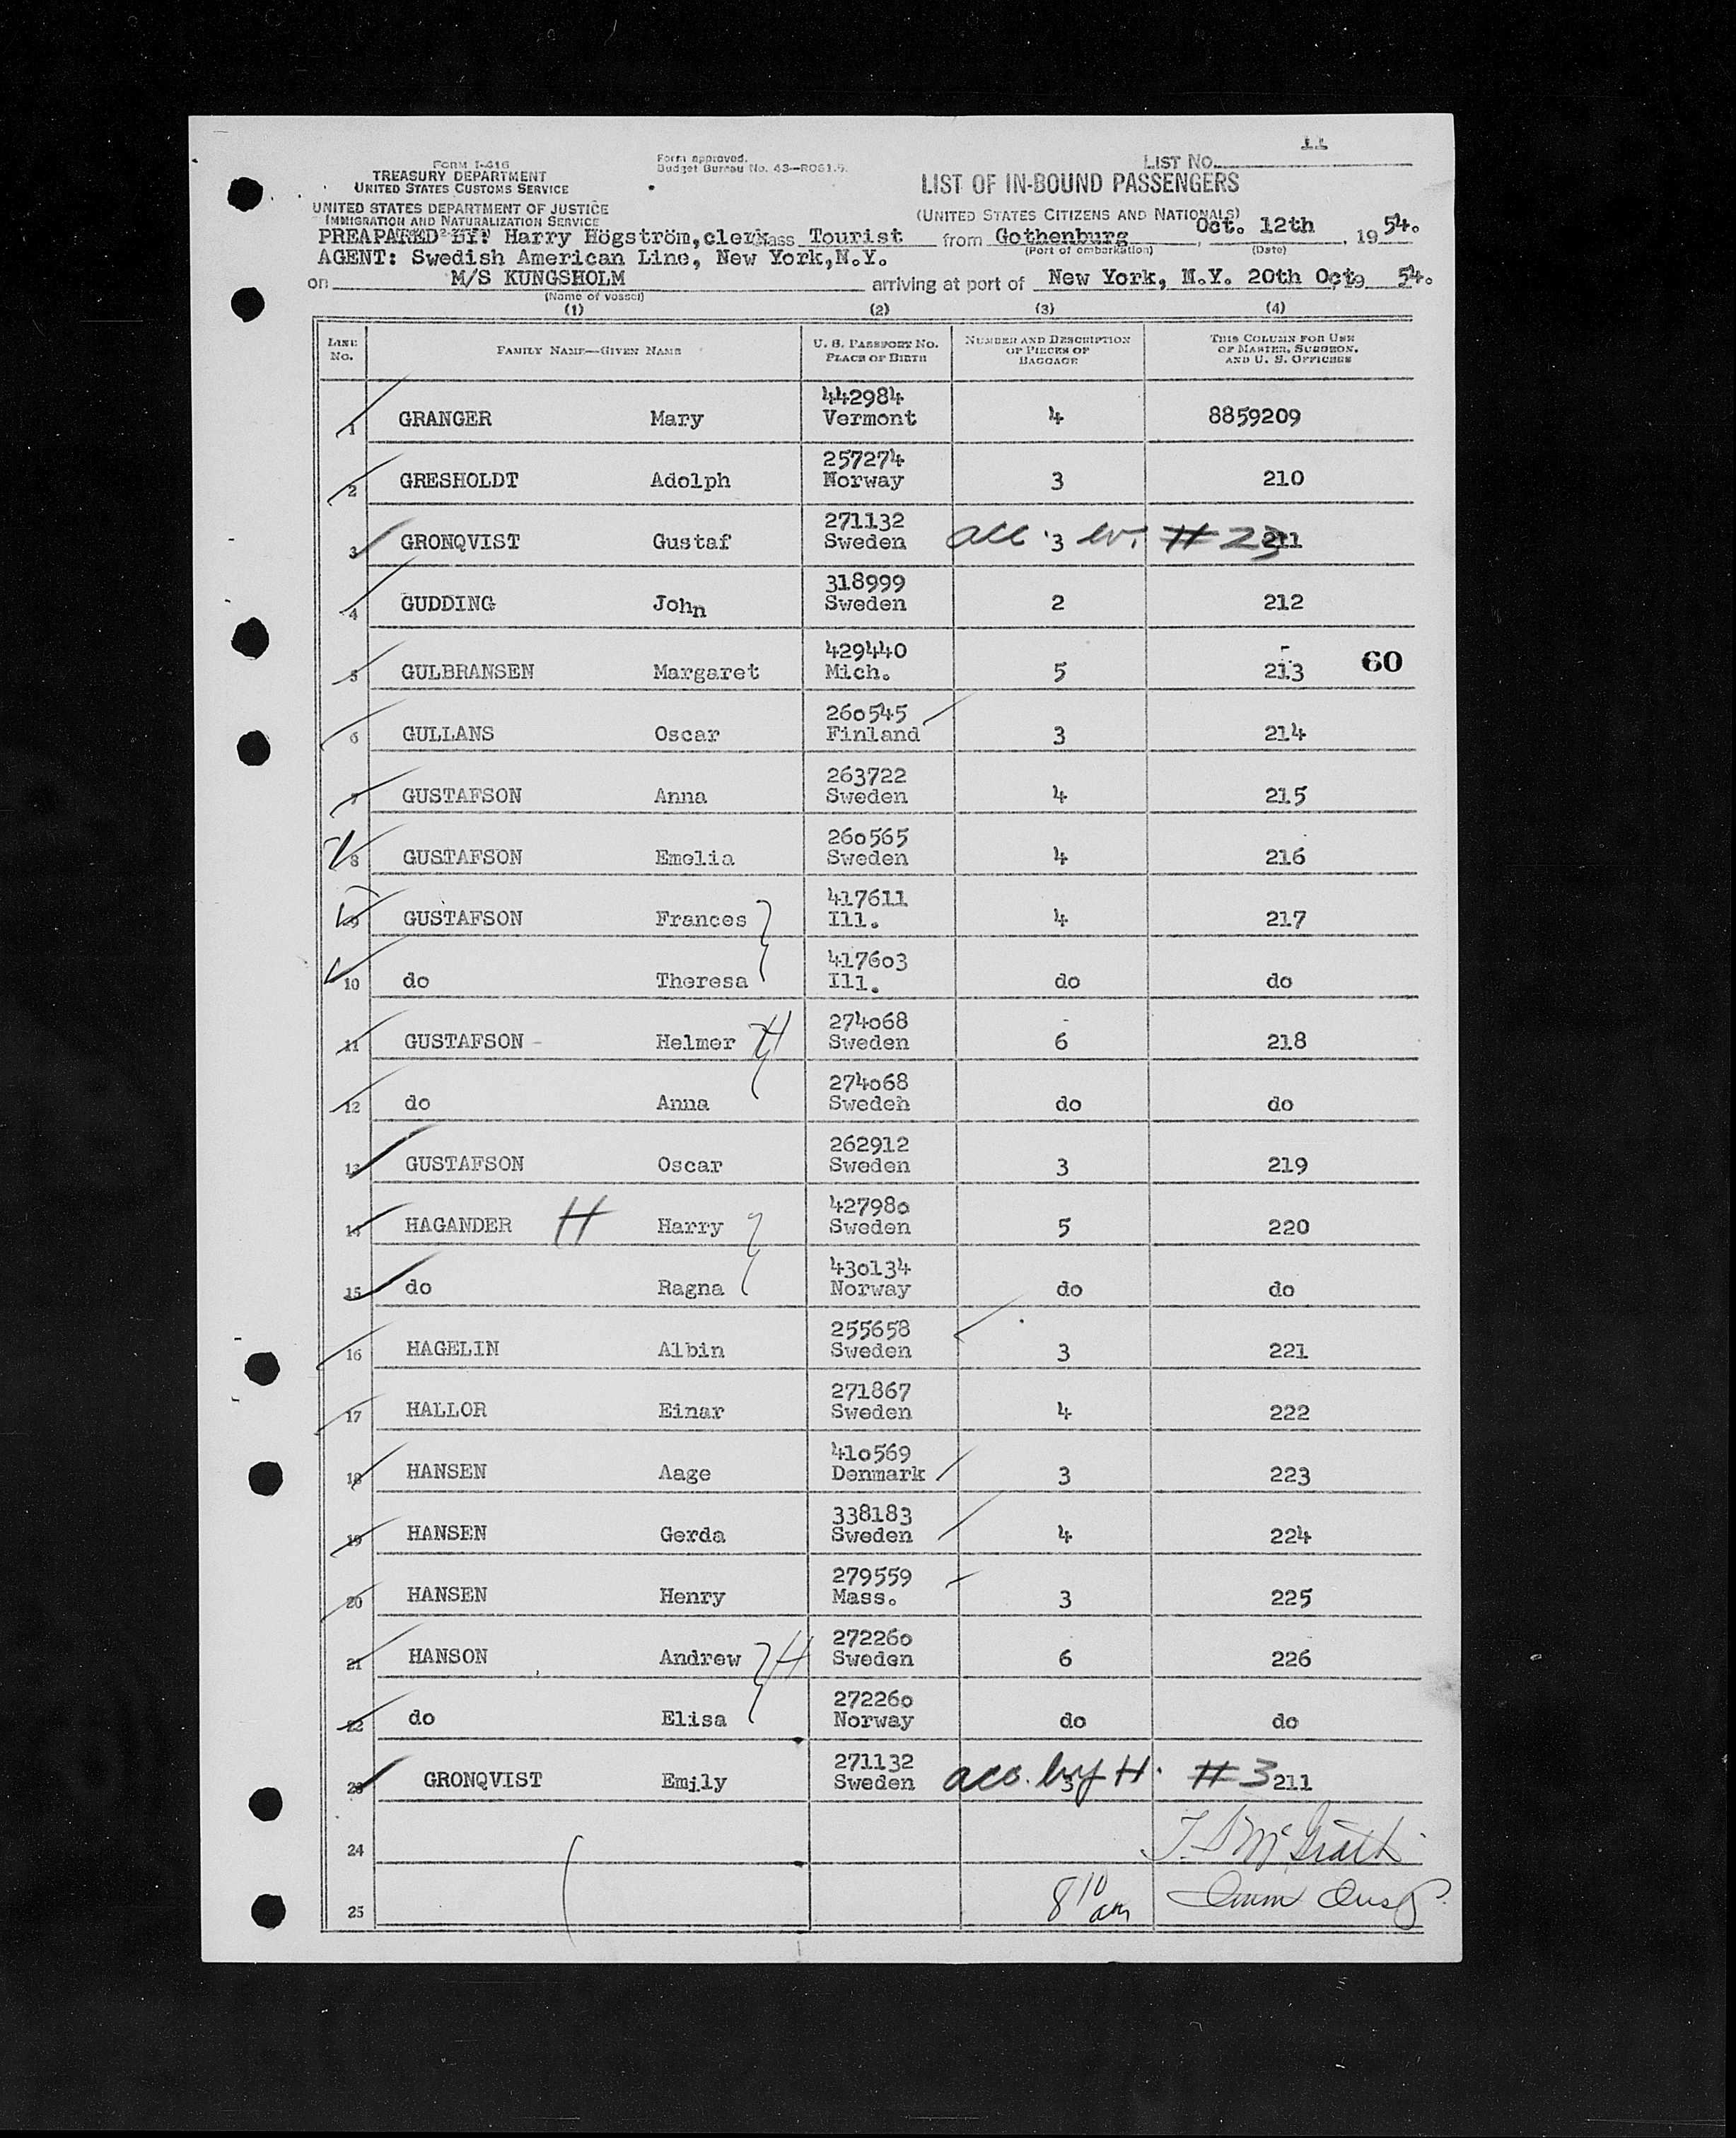 11
LIST NO.
FORM I-416
TREASURY DEPARTMENT
UNITED STATES CUSTOMS SERVICE
Form approved.
Budget Bureau No. 43—R061.5.
LIST OF IN-BOUND PASSENGERS
UNITED STATES DEPARTMENT OF JUSTICE
IMMIGRATION AND NATURALIZATION SERVICE
(UNITED STATES CITIZENS AND NATIONALS)
PREAPARED BY: Harry Högström, clerk Class Tourist from Gothenburg, Oct. 12th, 19 54.
(Port of embarkation) (Date)
AGENT: Swedish American Line, New York, N.Y.
on M/S KUNGSHOLM arriving at port of New York, N.Y. 20th Oct, 19 54.
(Name of vessel)
(1) (2) (3) (4)
LINE NO. FAMILY NAME—GIVEN NAME U. S. PASSPORT NO. PLACE OF BIRTH NUMBER AND DESCRIPTION OF PIECES OF BAGGAGE THIS COLUMN FOR USE OF MASTER, SURGEON, AND U. S. OFFICERS
442984
1 GRANGER Mary Vermont 4 8859209
257274
2 GRESHOLDT Adolph Norway 3 210
271132
3 GRONQVIST Gustaf Sweden acc. 3 w. # 23 211
318999
4 GUDDING John Sweden 2 212
429440
5 GULBRANSEN Margaret Mich. 5 213 60
260545
6 GULLANS Oscar Finland 3 214
263722
7 GUSTAFSON Anna Sweden 4 215
260565
8 GUSTAFSON Emelia Sweden 4 216
417611
9 GUSTAFSON Frances Ill. 4 217
417603
10 do Theresa Ill. do do
274068
11 GUSTAFSON - Helmer H Sweden 6 218
274068
12 do Anna Sweden do do
262912
13 GUSTAFSON Oscar Sweden 3 219
427980
14 HAGANDER H Harry Sweden 5 220
430134
15 do Ragna Norway do do
255658
16 HAGELIN Albin Sweden 3 221
271867
17 HALLOR Einar Sweden 4 222
410569
18 HANSEN Aage Denmark 3 223
338183
19 HANSEN Gerda Sweden 4 224
279559
20 HANSEN Henry Mass. 3 225
272260
21 HANSON Andrew H Sweden 6 226
272260
22 do Elisa Norway do do
271132
23 GRONQVIST Emily Sweden acc. by 3 H. # 3 211
24 T. S McGrath
25 8 10 am Imm Insp.